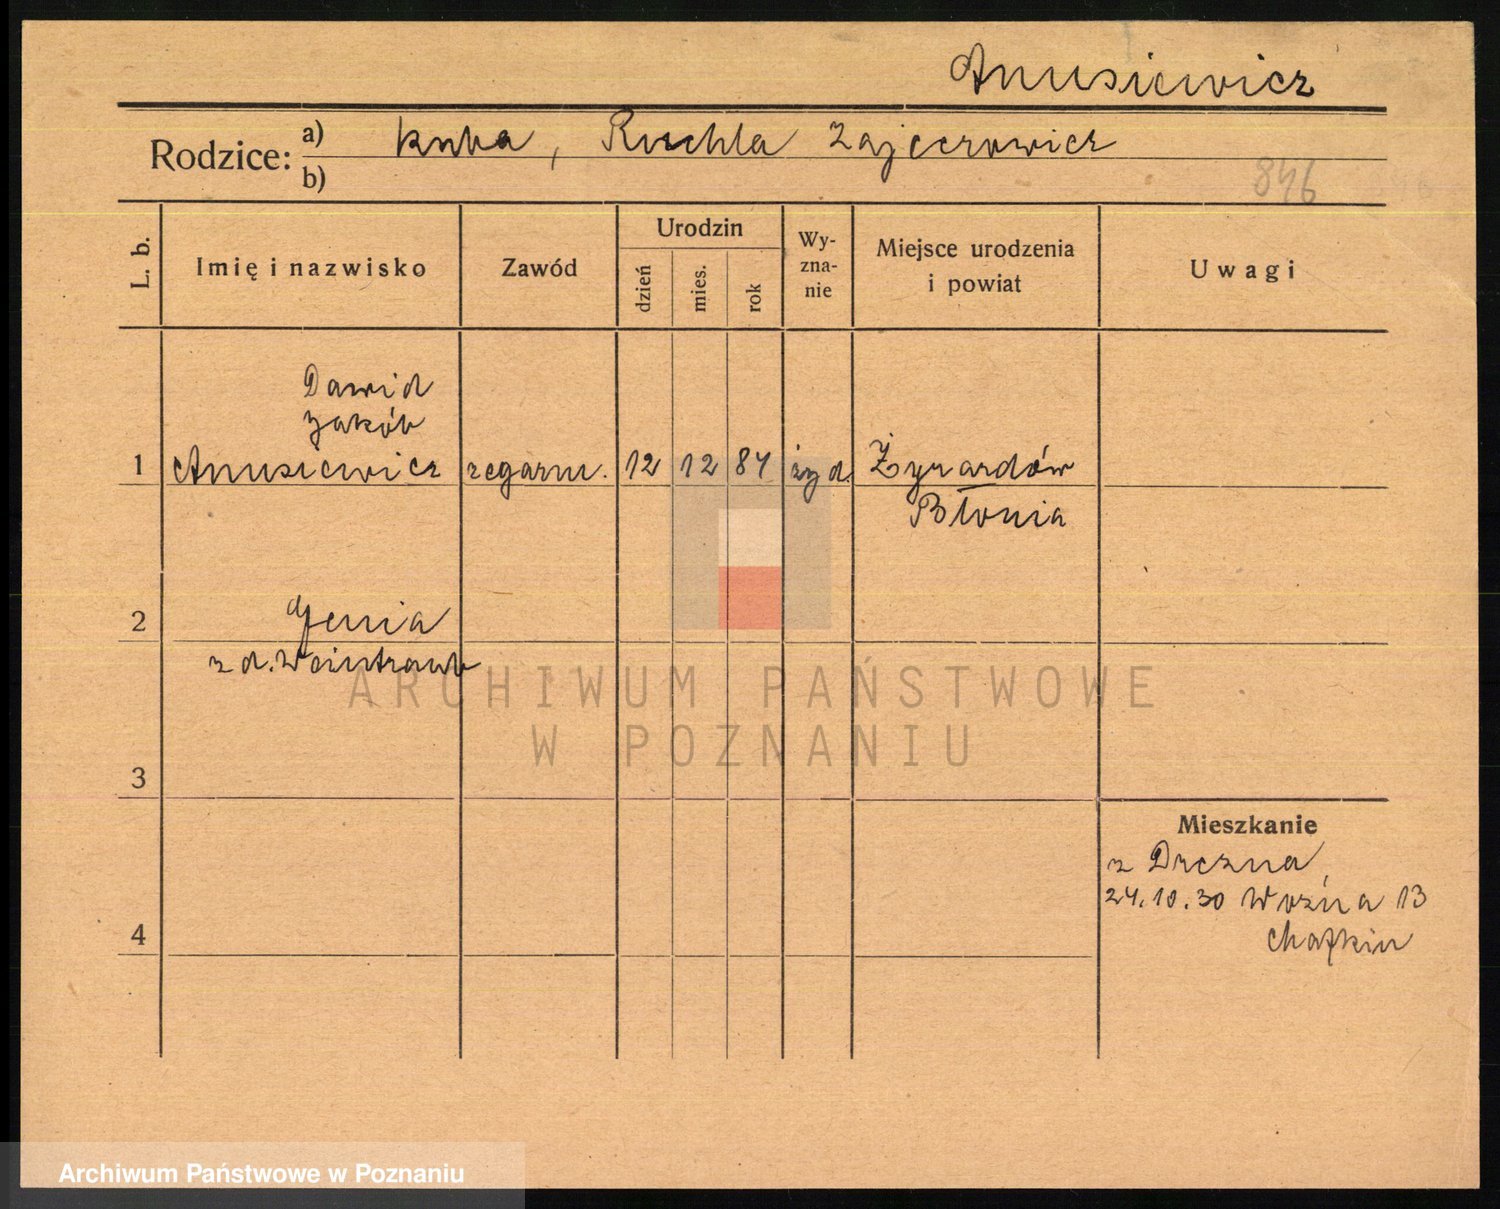 Anusiewicz
Rodzice: a) Kuba, Ruchla Zajcerowicz
b)
846
L. b.
Imię i nazwisko
Zawód
Urodzin
dzień
mies.
rok
Wy-
zna-
nie
Miejsce urodzenia
i powiat
Uwagi
Dawid
Jakób
1 Anusiewicz zegarm. 12 12 87 żyd. Żyrardów
Błonia
2 Genia
z d. Weintraub
3
Mieszkanie
z Drezna,
24.10.30 Woźna 13
4
ARCHIWUM PAŃSTWOWE
W POZNANIU
Archiwum Państwowe w Poznaniu